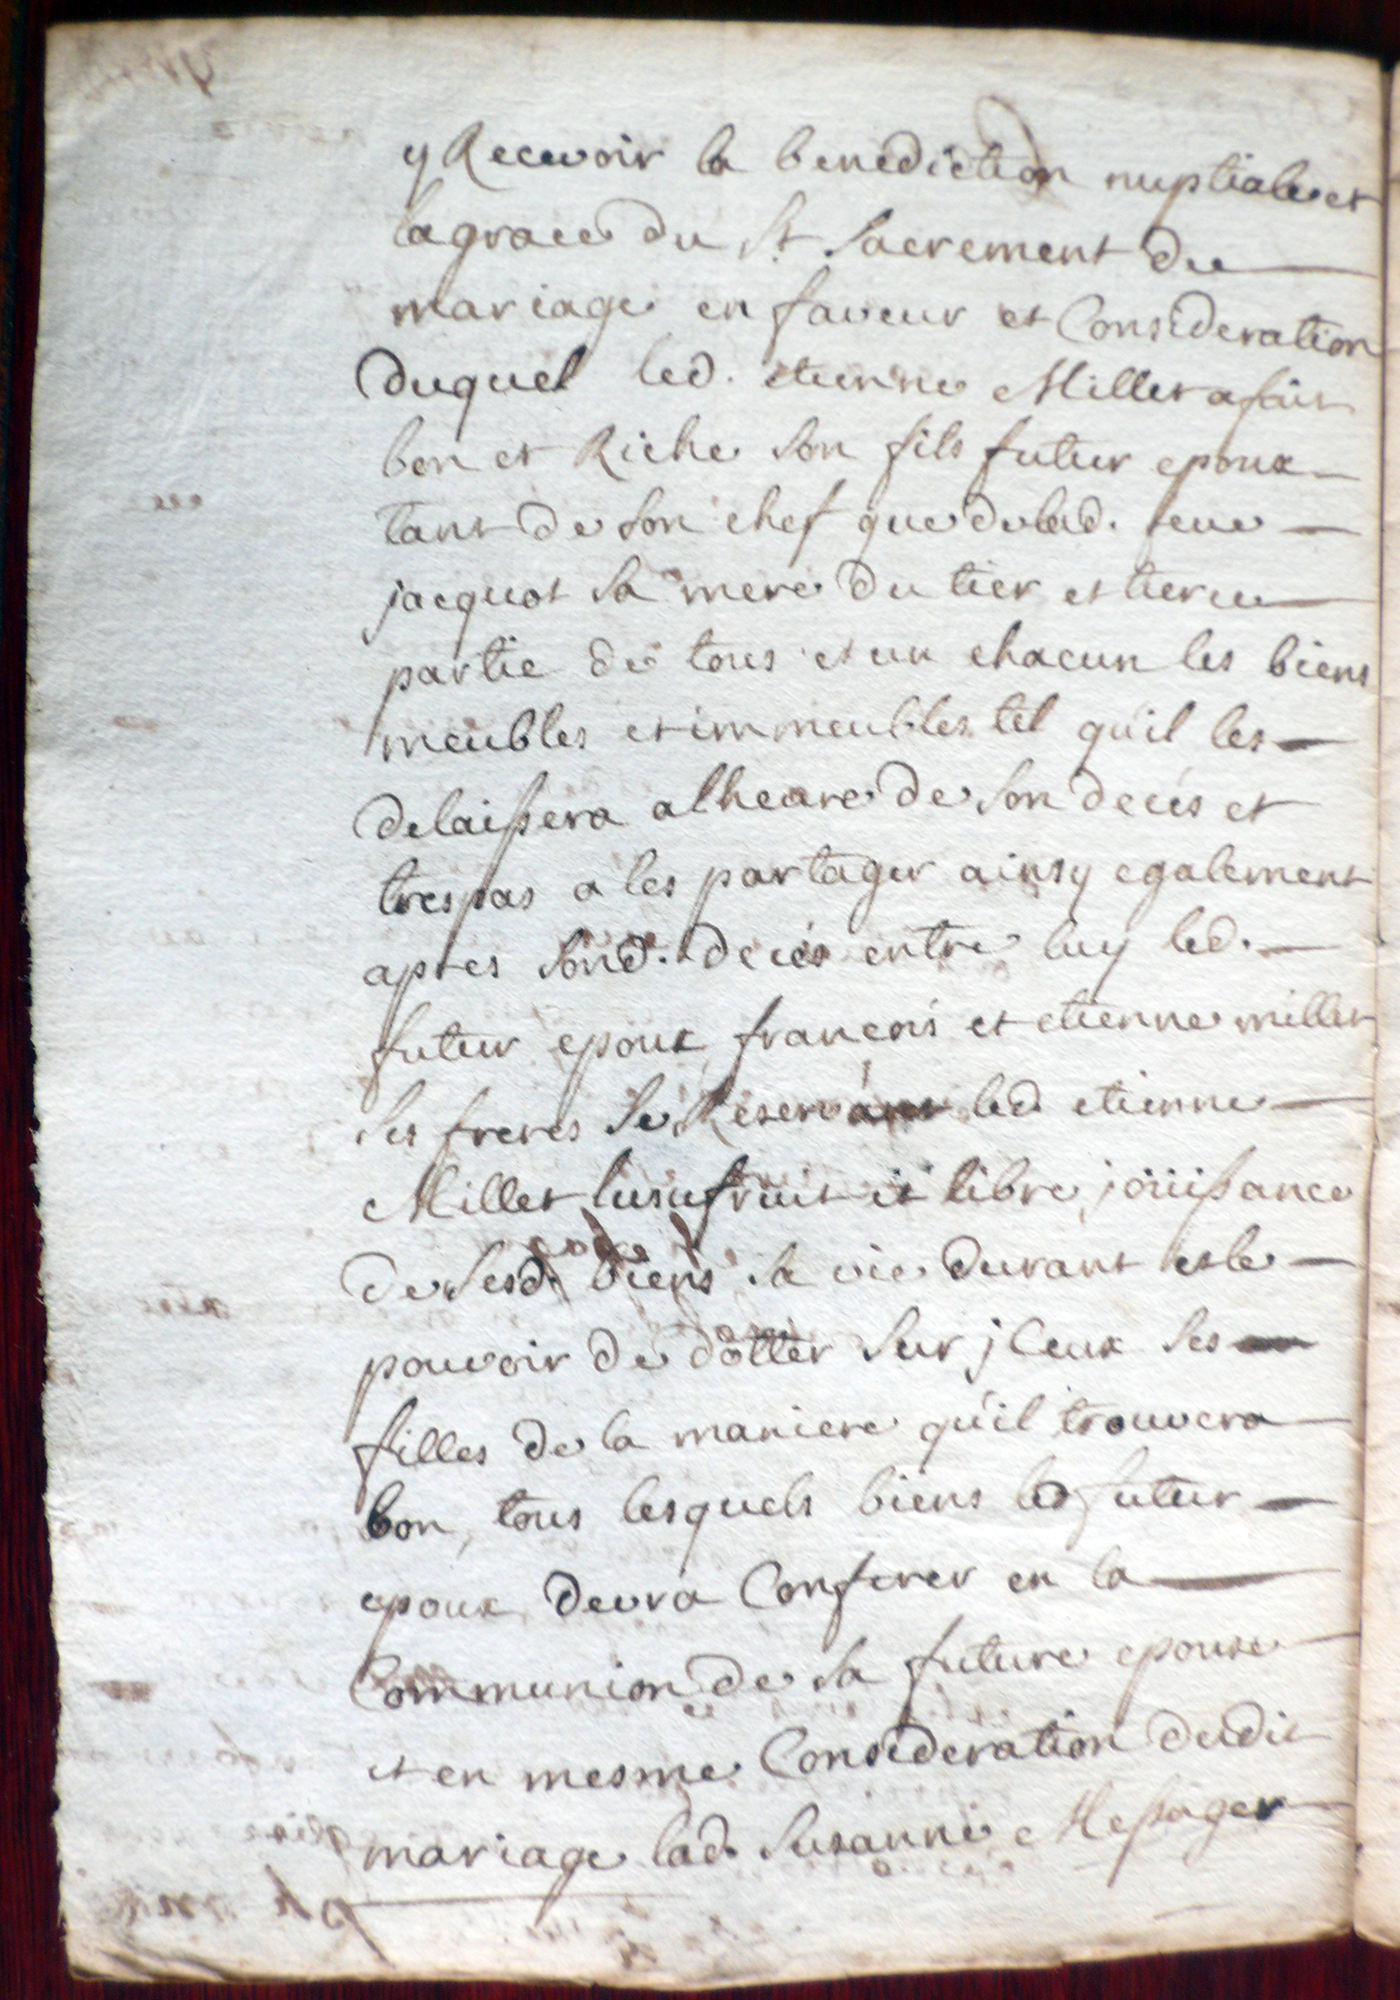 y Recevoir la benediction nuptiale et
la grace du St Sacrement du
mariage en faveur et Consideration
duquel led. etienne Millet a fait
bon et Riche son fils futur epoux
tant de son chef que de lad. feue
jacquot sa mere du tier et tierce
partie de tous et un chacun les biens
meubles et immeubles tel qu'il les
delaissera a lheure de son deces et
trespas a les partager ainsy egalement
apres sond. deces entre luy led.
futur epoux francois et etienne millet
ses freres se Réservant led. etienne
Millet lusufruit et libre joüissance
de sesd. biens sa vie durant et le
pouvoir de dotter sur jceux ses
filles de la maniere qu'il trouvera
bon, tous lesquels biens led futur
epoux devra Conferer en la
Communion de sa future epouse
et en mesme Consideration dudit
mariage lad. Susanne Messager